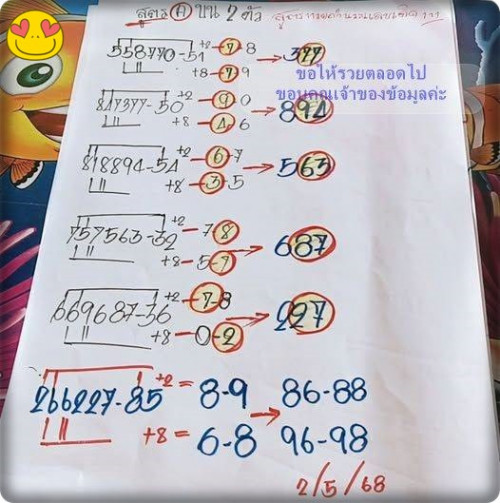 สูตร A บน 2 ตัว
558770-51 +2 - 7-8 377
+8 - 7-9
ขอให้รวยตลอดไป
ขอบคุณเจ้าของข้อมูลค่ะ
847377-50 +2 - 9-0 894
+8 - 4-6
818894-54 +2 - 6-7 563
+8 - 3-5
757563-32 +2 - 7-8 687
+8 - 5-7
669687-36 +2 - 7-8 227
+8 - 0-2
266227-85 +2 = 8-9 86-88
+8 = 6-8 96-98
2/5/68